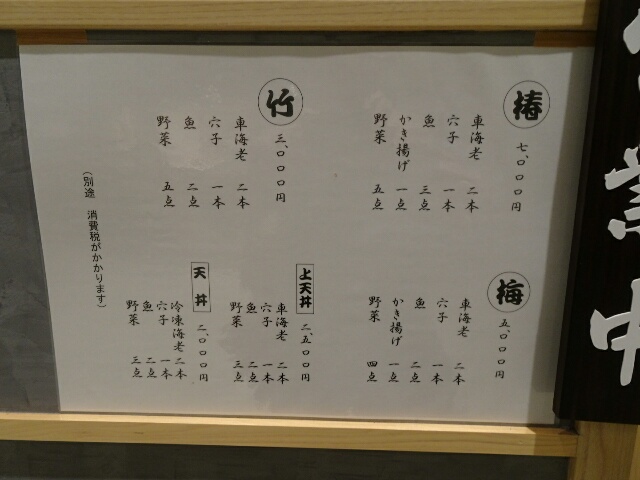 椿
七、〇〇〇円
車海老 二本
穴子 一本
魚 三点
かき揚げ 一点
野菜 五点
梅
五、〇〇〇円
車海老 二本
穴子 一本
魚 二点
かき揚げ 一点
野菜 四点
竹
三、〇〇〇円
車海老 二本
穴子 一本
魚 二点
野菜 五点
上天丼
二、五〇〇円
車海老 二本
穴子 一本
魚 二点
野菜 三点
天丼
二、〇〇〇円
冷凍海老 二本
穴子 一本
魚 二点
野菜 三点
（別途 消費税がかかります）
業中